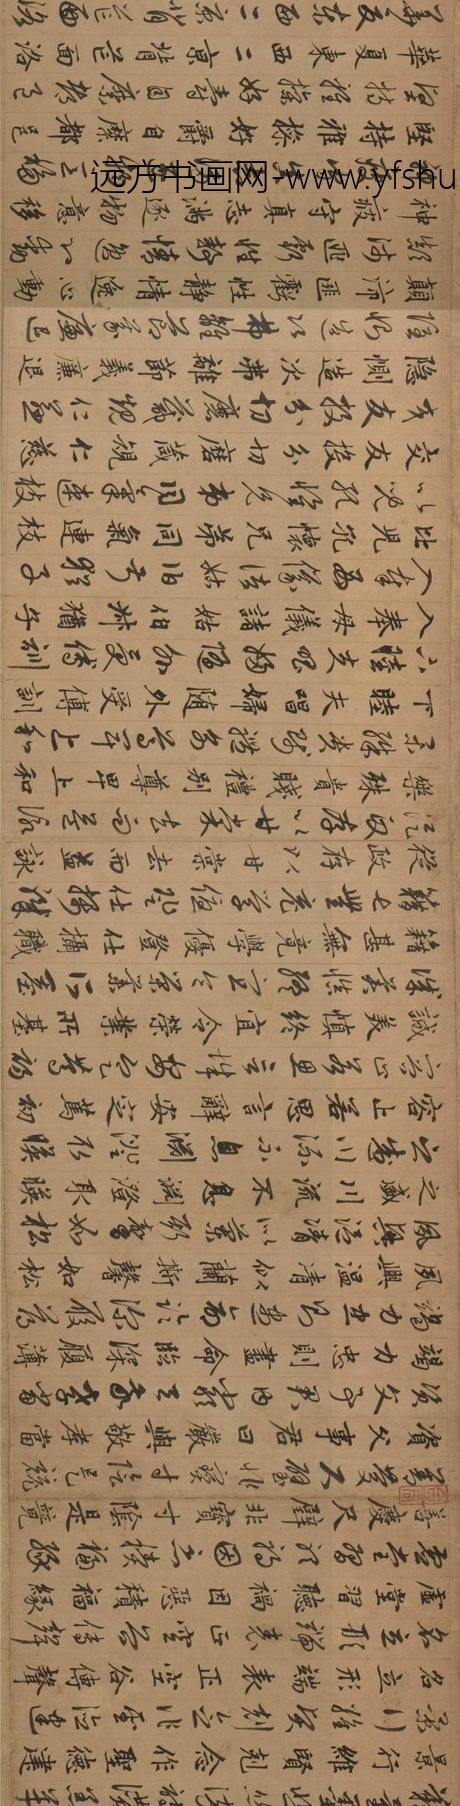 景行維賢克念作聖德建
景行維賢克念作聖德建
名立形端表正空谷傳聲
名立形端表正空谷傳聲
虛堂習聽禍因惡積福緣
虛堂習聽禍因惡積福緣
善慶尺璧非寶寸陰是競
善慶尺璧非寶寸陰是競
資父事君曰嚴與敬孝當
資父事君曰嚴與敬孝當
竭力忠則盡命臨深履薄
竭力忠則盡命臨深履薄
夙興溫清似蘭斯馨如松
夙興溫清似蘭斯馨如松
之盛川流不息淵澄取暎
之盛川流不息淵澄取暎
容止若思言辭安定篤初
容止若思言辭安定篤初
誠美慎終宜令榮業所基
誠美慎終宜令榮業所基
籍甚無竟學優登仕攝職
籍甚無竟學優登仕攝職
從政存以甘棠去而益詠
從政存以甘棠去而益詠
樂殊貴賤禮別尊卑上和
樂殊貴賤禮別尊卑上和
下睦夫唱婦隨外受傅訓
下睦夫唱婦隨外受傅訓
入奉母儀諸姑伯叔猶子
入奉母儀諸姑伯叔猶子
比兒孔懷兄弟同氣連枝
比兒孔懷兄弟同氣連枝
交友投分切磨箴規仁慈
交友投分切磨箴規仁慈
隱惻造次弗離節義廉退
隱惻造次弗離節義廉退
顛沛匪虧性靜情逸心動
顛沛匪虧性靜情逸心動
神疲守真志滿逐物意移
神疲守真志滿逐物意移
堅持雅操好爵自縻都邑
堅持雅操好爵自縻都邑
華夏東西二京背芒面洛
華夏東西二京背芒面洛
远方书画网-www.yfshu